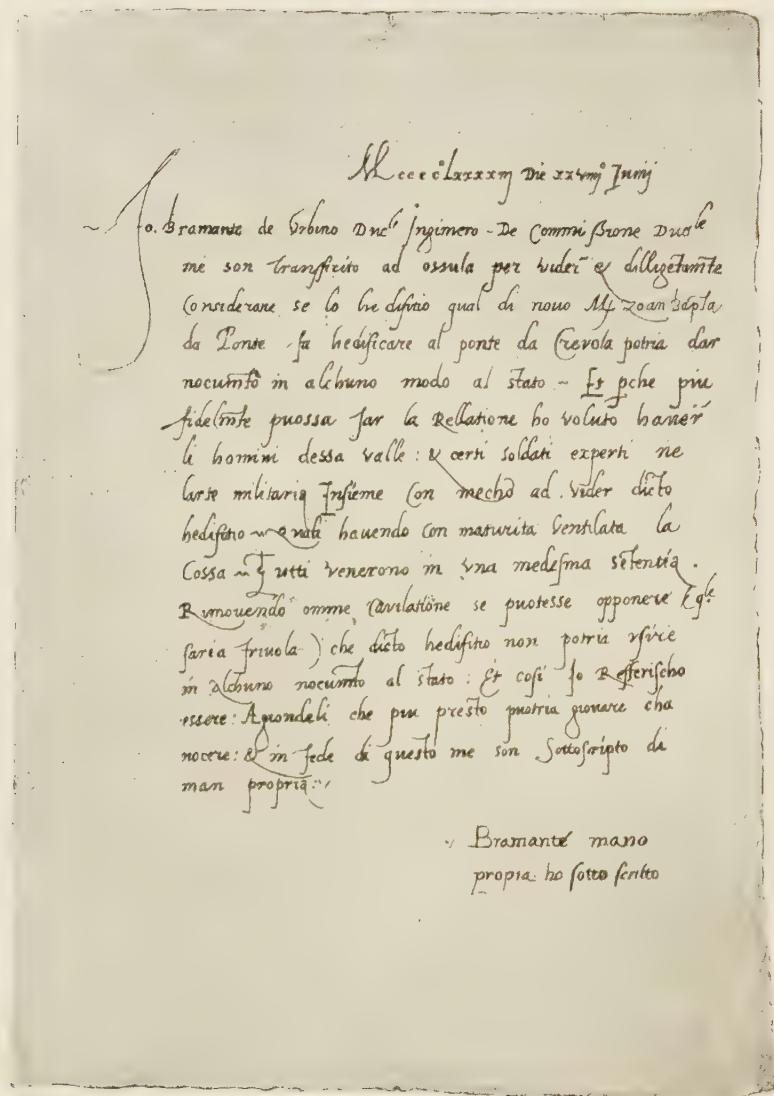 Mcccc°lxxxxiij Die xxviiij° Junij
Jo. Bramante de Urbino Duc^li Ingimero - De Commissione Ducale
me son transfferito ad ossula per vider e dilligētamēte
Considerare se lo hedifitio qual di nouo Mɉ zoan bap̄ta
da Ponte fa hedificare al ponte da Crevola potria dar
nocumēto in alchuno modo al stato - Et p̱che piu
fidelmēte puossa far la Rellatione ho voluto hauer
li homini dessa valle : & certi soldati experti ne
larte militaria Insieme Con mecho ad vider dicto
hedifitio - quali hauendo con maturita ventilata la
Cossa - Tutti venerono in vna medesma sētentia .
Rimouendo omme Cavilatione se puotesse opponere (q^le
saria friuola ) che dicto hedifitio non potria vsire
in alchuno nocumēto al stato : Et cosi Io Refferischo
essere : Agiondeli che piu presto puotria giouare cha
nocere : & in fede di questo me son sottoscripto di
man propria :
Bramante mano
propia ho sotto scritto